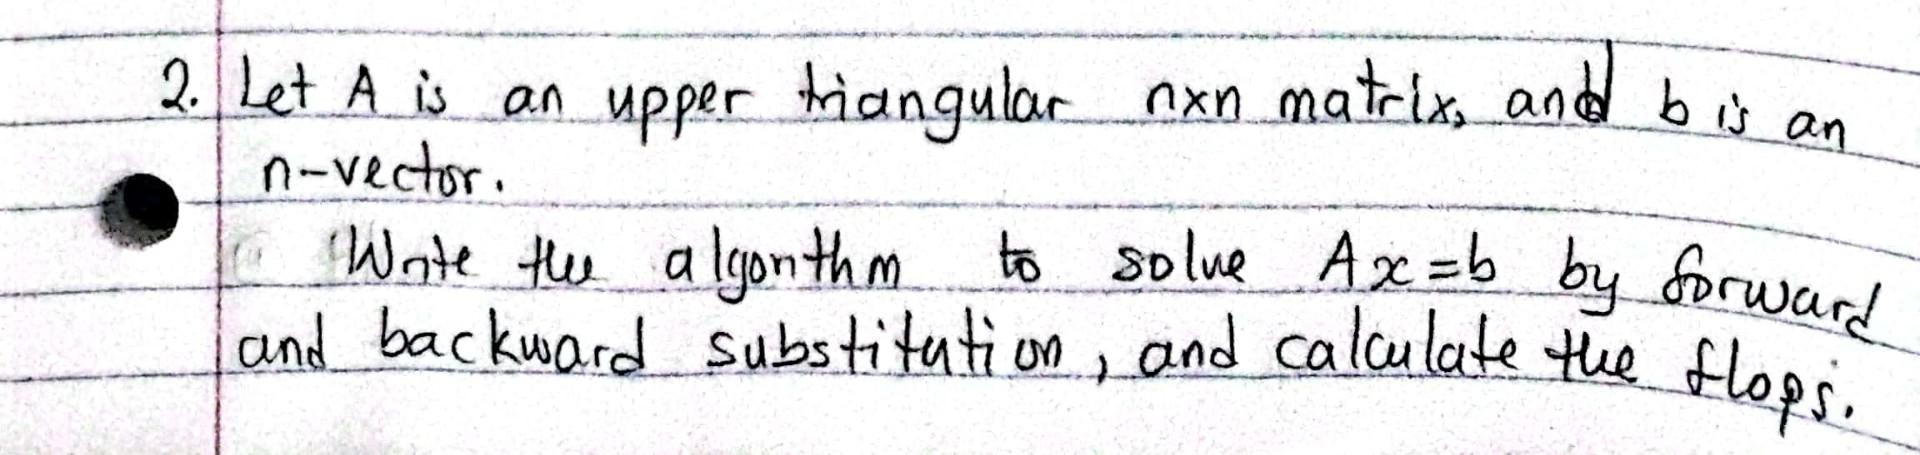 2. Let A is an upper triangular nxn matrix, and b is an
n-vector.
Write the algorithm to solve Ax=b by forward
and backward substitution, and calculate the flops.